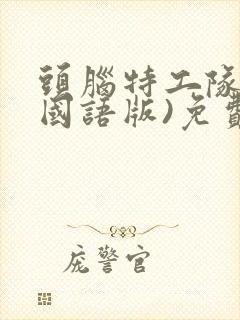 頭腦特工隊
國語版)免費
庞警官